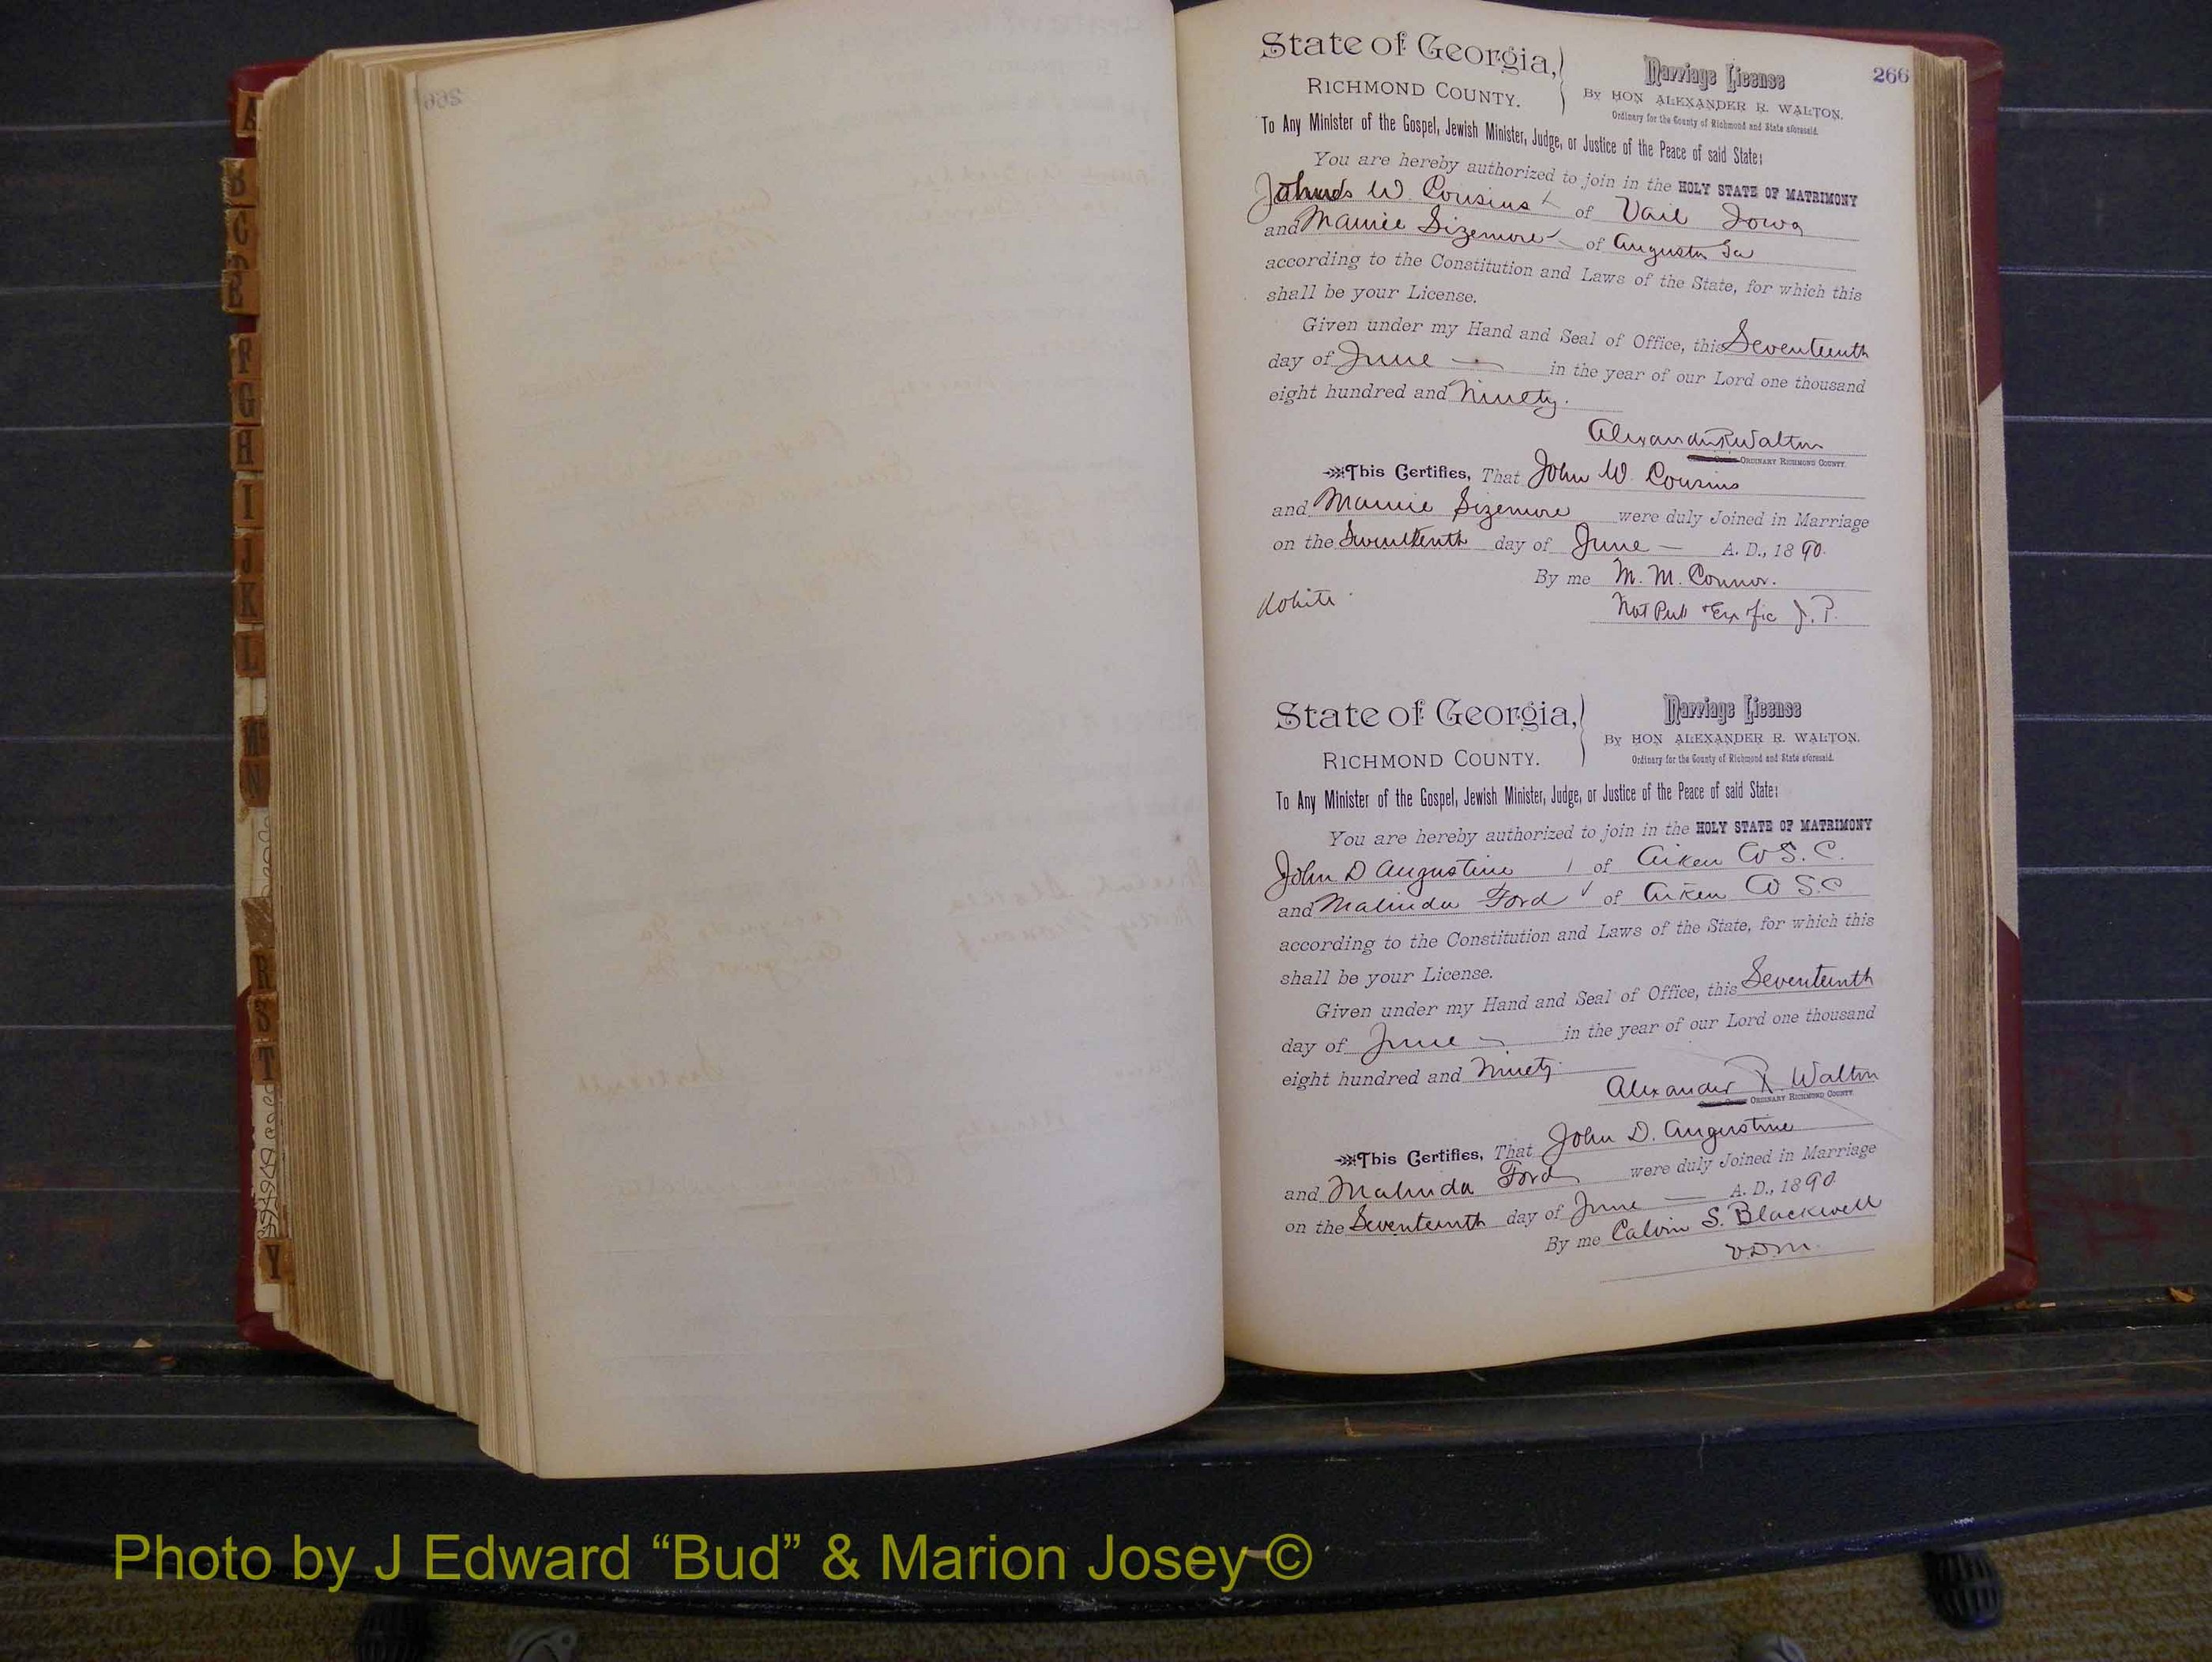 State of Georgia,
RICHMOND COUNTY.
Marriage License
By HON ALEXANDER R. WALTON.
Ordinary for the County of Richmond and State aforesaid.
266
To Any Minister of the Gospel, Jewish Minister, Judge, or Justice of the Peace of said State:
You are hereby authorized to join in the HOLY STATE OF MATRIMONY
W. Cousins of Vail Iowa
and Mamie Sizemore of Augusta Ga
according to the Constitution and Laws of the State, for which this
shall be your License.
Given under my Hand and Seal of Office, this Seventeenth
day of June in the year of our Lord one thousand
eight hundred and Ninety.
Alexander R Walton
ORDINARY RICHMOND COUNTY.
This Certifies, That John W. Cousins
and Mamie Sizemore were duly Joined in Marriage
on the Seventeenth day of June — A. D., 1890.
By me M. M. Connor.
White
Not Pub & Ex ofic J. P.
State of Georgia,
RICHMOND COUNTY.
Marriage License
By HON ALEXANDER R. WALTON.
Ordinary for the County of Richmond and State aforesaid.
To Any Minister of the Gospel, Jewish Minister, Judge, or Justice of the Peace of said State:
You are hereby authorized to join in the HOLY STATE OF MATRIMONY
John D Augustine of Aiken Co S. C.
and Malinda Ford of Aiken Co S. C
according to the Constitution and Laws of the State, for which this
shall be your License.
Given under my Hand and Seal of Office, this Seventeenth
day of June in the year of our Lord one thousand
eight hundred and Ninety.
Alexander R. Walton
ORDINARY RICHMOND COUNTY
This Certifies, That John D. Augustine
and Malinda Ford were duly Joined in Marriage
on the Seventeenth day of June — A. D., 1890.
By me Calvin S. Blackwell
V.D.M.
A
B
C
D
E
F
G
H
I
J
K
L
M
N
R
S
T
Y
Photo by J Edward “Bud” & Marion Josey ©